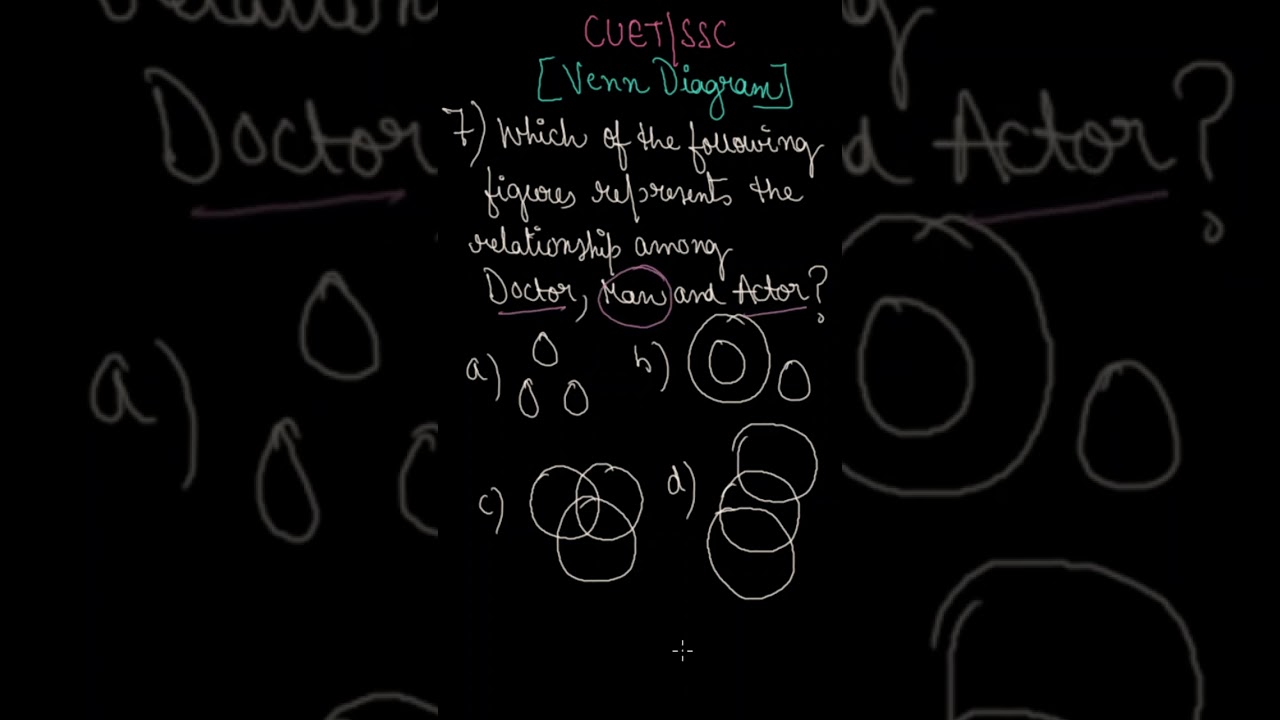 CUET|SSC
[Venn Diagram]
7) Which of the following
figures represents the
relationship among
Doctor, Man and Actor?
a) b)
c) d)